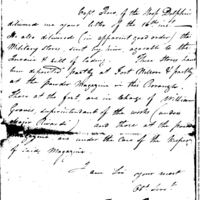 Capt Tero of the Ship Dolphin
delivered me your letter of the 16th inst
He also delivered (in apparent good order) the
Military stores sent by him agreeable to the
Invoice & bill of lading. These stores have
been deposited partly at Fort Nelson & partly
at the powder Magazine in this Borough.
Those at the fort are in charge of William
Graves, superintendant of the works (under
Major Rivardi) and those at the powder
Magazine are under the care of the Keeper
of said Magazine.
I am Sir your most
Obt Servt